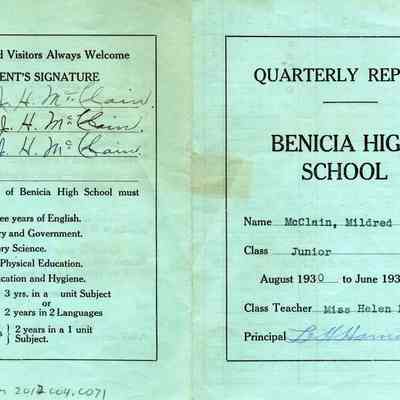 d Visitors Always Welcome
ENT'S SIGNATURE
J. H. McClain.
J. H. McClain.
J. H. McClain.
of Benicia High School must
ee years of English.
ry and Government.
ory Science.
Physical Education.
cation and Hygiene.
3 yrs. in a unit Subject
or
2 years in 2 Languages
2 years in a 1 unit
Subject.
2012 C04.C071
QUARTERLY REP
BENICIA HIG
SCHOOL
Name McClain, Mildred
Class Junior
August 1930 to June 193
Class Teacher Miss Helen
Principal